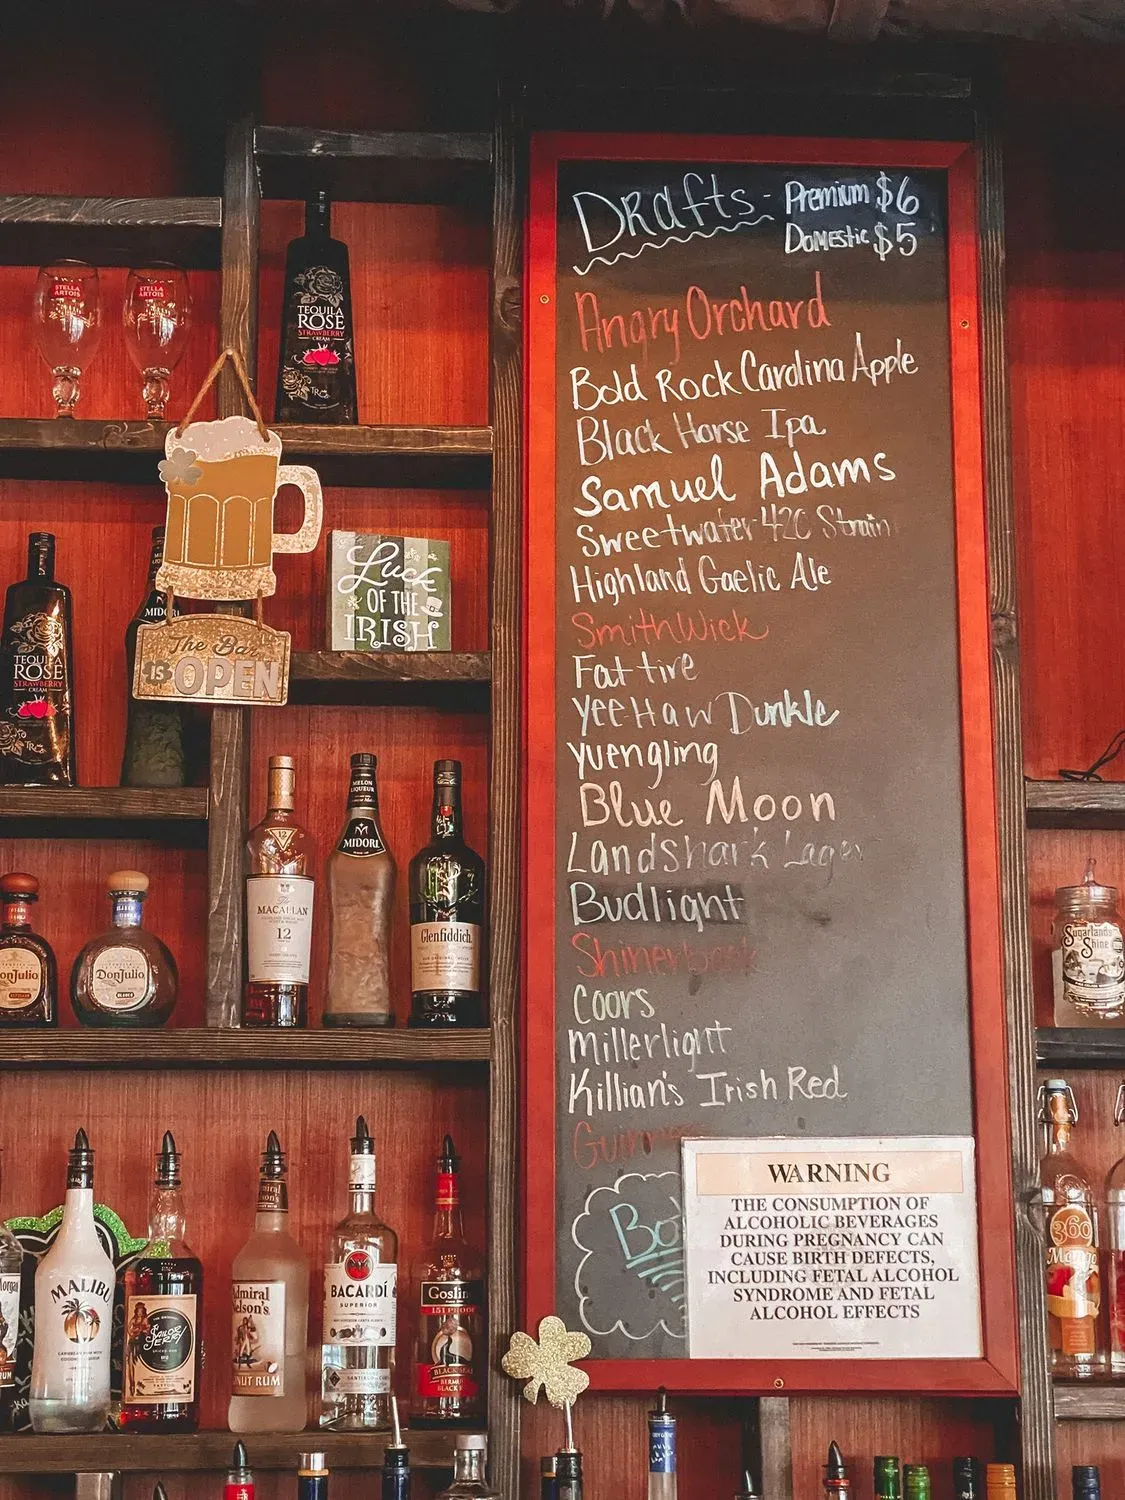 Drafts - Premium $6
Domestic $5
Angry Orchard
Bold Rock Carolina Apple
Black Horse Ipa
Samuel Adams
Sweetwater 420 Strain
Highland Gaelic Ale
SmithWick
Fat tire
Yee-Haw Dunkle
Yuengling
Blue Moon
Landshark Lager
Budlight
Shinerbock
Coors
Millerlight
Killian's Irish Red
WARNING
THE CONSUMPTION OF
ALCOHOLIC BEVERAGES
DURING PREGNANCY CAN
CAUSE BIRTH DEFECTS,
INCLUDING FETAL ALCOHOL
SYNDROME AND FETAL
ALCOHOL EFFECTS
STELLA
ARTOIS
STELLA
ARTOIS
TEQUILA
ROSE
STRAWBERRY
CREAM
Luck
OF THE
IRISH
The Bar
IS OPEN
TEQUILA
ROSE
STRAWBERRY
CREAM
MELON
LIQUEUR
MIDORI
The
MACALLAN
12
Glenfiddich
DonJulio
MALIBU
SAILOR
JERRY
BACARDÍ
SUPERIOR
151 PROOF
Sugarlands
Shine
360